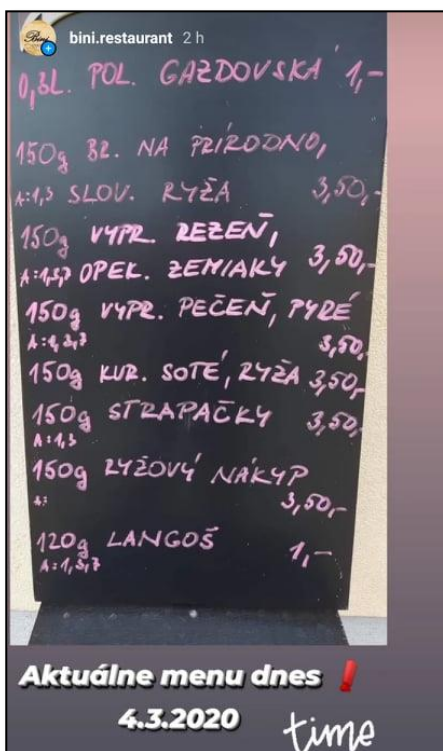 bini.restaurant 2 h
0,3L. POL. GAZDOVSKÁ 1,-
150g BR. NA PRÍRODNO,
A:1,3 SLOV. RYŽA 3,50,-
150g VYPR. REZEŇ,
A:1,3,7 OPEK. ZEMIAKY 3,50,-
150g VYPR. PEČEŇ, PYRÉ
A:1,3,7 3,50,-
150g KUR. SOTÉ, RYŽA 3,50,-
150g STRAPAČKY 3,50,-
A:1,3
150g RYŽOVÝ NÁKYP
3,50,-
120g LANGOŠ 1,-
A:1,3,7
Aktuálne menu dnes ❗
4.3.2020
time